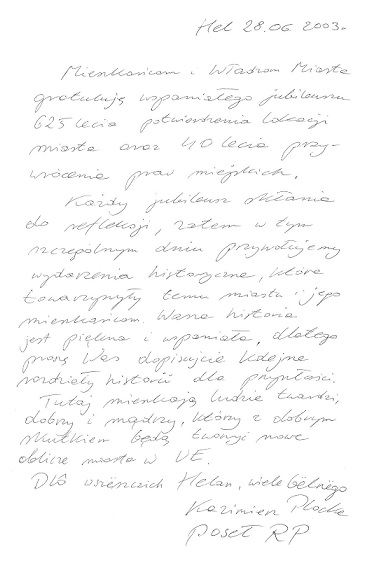 Hel 28.06 2003r.
Mieszkańcom i Władzom Miasta
gratuluję wspaniałego jubileuszu
625 lecia potwierdzenia lokacji
miasta oraz 40 lecia przy-
wrócenia praw miejskich.
Każdy jubileusz skłania
do refleksji, zatem w tym
szczególnym dniu przywołujemy
wydarzenia historyczne, które
towarzyszyły temu miastu i jego
mieszkańcom. Wasza historia
jest piękna i wspaniała, dlatego
proszę Was dopisujcie kolejne
rozdziały historii dla przyszłości.
Tutaj mieszkają ludzie twardzi,
dobrzy i mądrzy, którzy z dobrym
skutkiem będą tworzyć nowe
oblicze miasta w UE.
Dlô wszëtczich Helan, wiele bëlnégo
Kazimierz Plocke
poseł RP